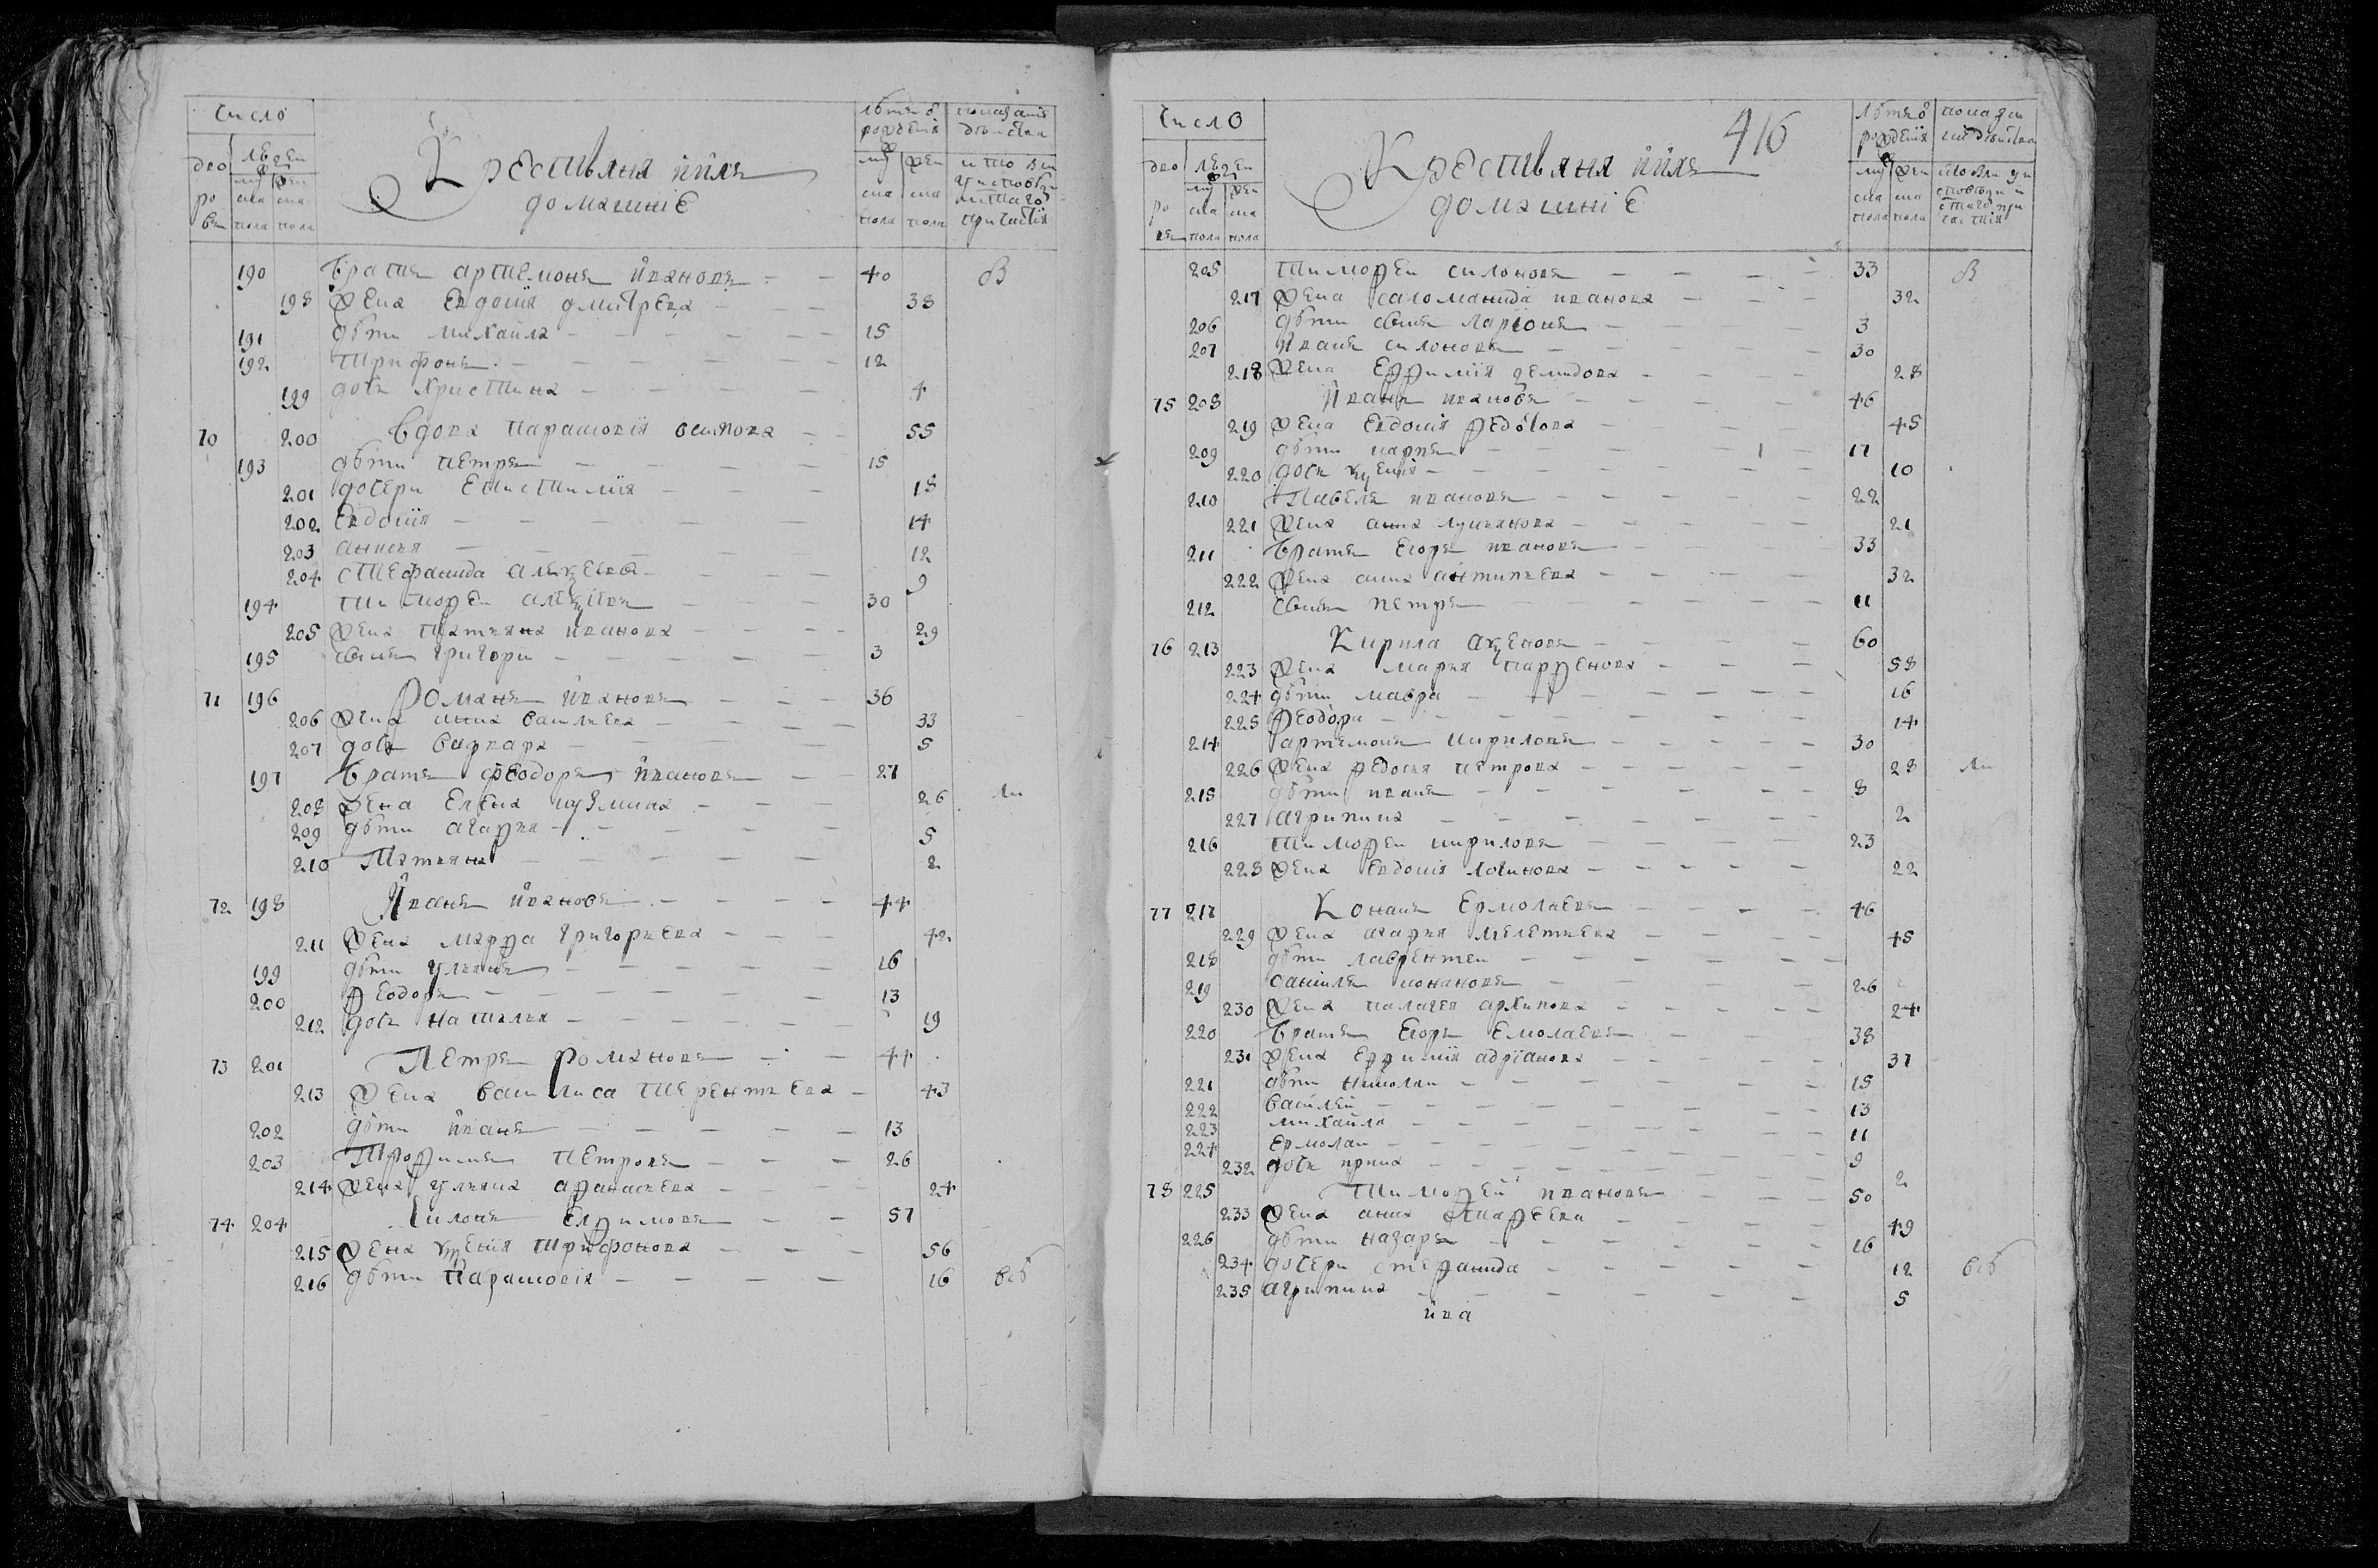 Число
дворовъ
людей
муска пола
женска пола
Крестьяня и ихъ
домашнïе
лѣтъ ѿ
рожденïя
муска пола
женска пола
190 братъ артемонъ ивановъ 40 В
198 жена Евдокïя дмитрева 38
191 дѣти михаила 15
192 трифонъ 12
199 дочь христина 4
70 200 Вдова парасковïя осипова 55
193 дѣти петръ 15
201 дочери 18
202 Евдокïя 14
203 анисья 12
204 стефанида 9
194 тимоѳеи 30
205 жена татьяна иванова 29
195 сынъ григори 3
71 196 Романъ ивановъ 36
206 жена анна васильева 33
207 дочь варвара 5
197 братъ феодоръ ивановъ 27
208 жена елена кузмина 26
209 дѣти агаѳья 5
210 татьяна 2
72 198 Иванъ ивановъ 44
211 жена марѳа григорьева 42
199 дѣти ульянъ 16
200 ѳеодоръ 13
212 дочь наталья 19
73 201 Петръ романовъ 44
213 жена василиса терентьева 43
202 дѣти иванъ 13
203 Троѳимъ петровъ 26
214 жена ульяна аѳанасьева 24
74 204 Силонъ еѳимовъ 57
215 жена ксенïя трифонова 56
216 дѣти парасковïя 16
416
Число
дворовъ
людей
муска пола
женска пола
Крестьяня и ихъ
домашнïе
лѣтъ ѿ
рожденïя
муска пола
женска пола
205 тимоѳеи силоновъ 33 В
217 жена саломанида иванова 32
206 дѣти сынъ ларïонъ 3
207 Иванъ силоновъ 30
218 жена Еѳимïя демидова 28
75 208 Иванъ ивановъ 46
219 жена Евдокïя ѳедотова 45
209 дѣти карпъ 17
220 дочь ксенïя 10
210 Павелъ ивановъ 22
221 жена анна лукьянова 21
211 братъ егоръ ивановъ 33
222 жена анна антипьева 32
212 сынъ петръ 11
76 213 Кирила аксеновъ 60
223 жена марья парѳенова 58
224 дѣти мавра 16
225 ѳеодора 14
214 артемонъ кириловъ 30
226 жена ѳедосья петрова 28
215 дѣти иванъ 8
227 агрипина 2
216 тимоѳеи кириловъ 23
228 жена Евдокïя логинова 22
77 217 Кононъ Ермолаевъ 46
229 жена агаѳья мелетьева 45
218 дѣти лаврентеи
219 данïилъ кононовъ 26
230 жена палагея архипова 24
220 братъ Егоръ Емолаевъ 38
231 жена Еѳимïя адрïанова 37
221 дѣти николаи 15
222 василей 13
223 михаила 11
224 ермолаи 9
232 дочь ирина 2
78 225 Тимоѳей ивановъ 50
233 жена анна 49
226 дѣти назаръ 16
234 дочери стеѳанида 12
235 агрипина 5
ива